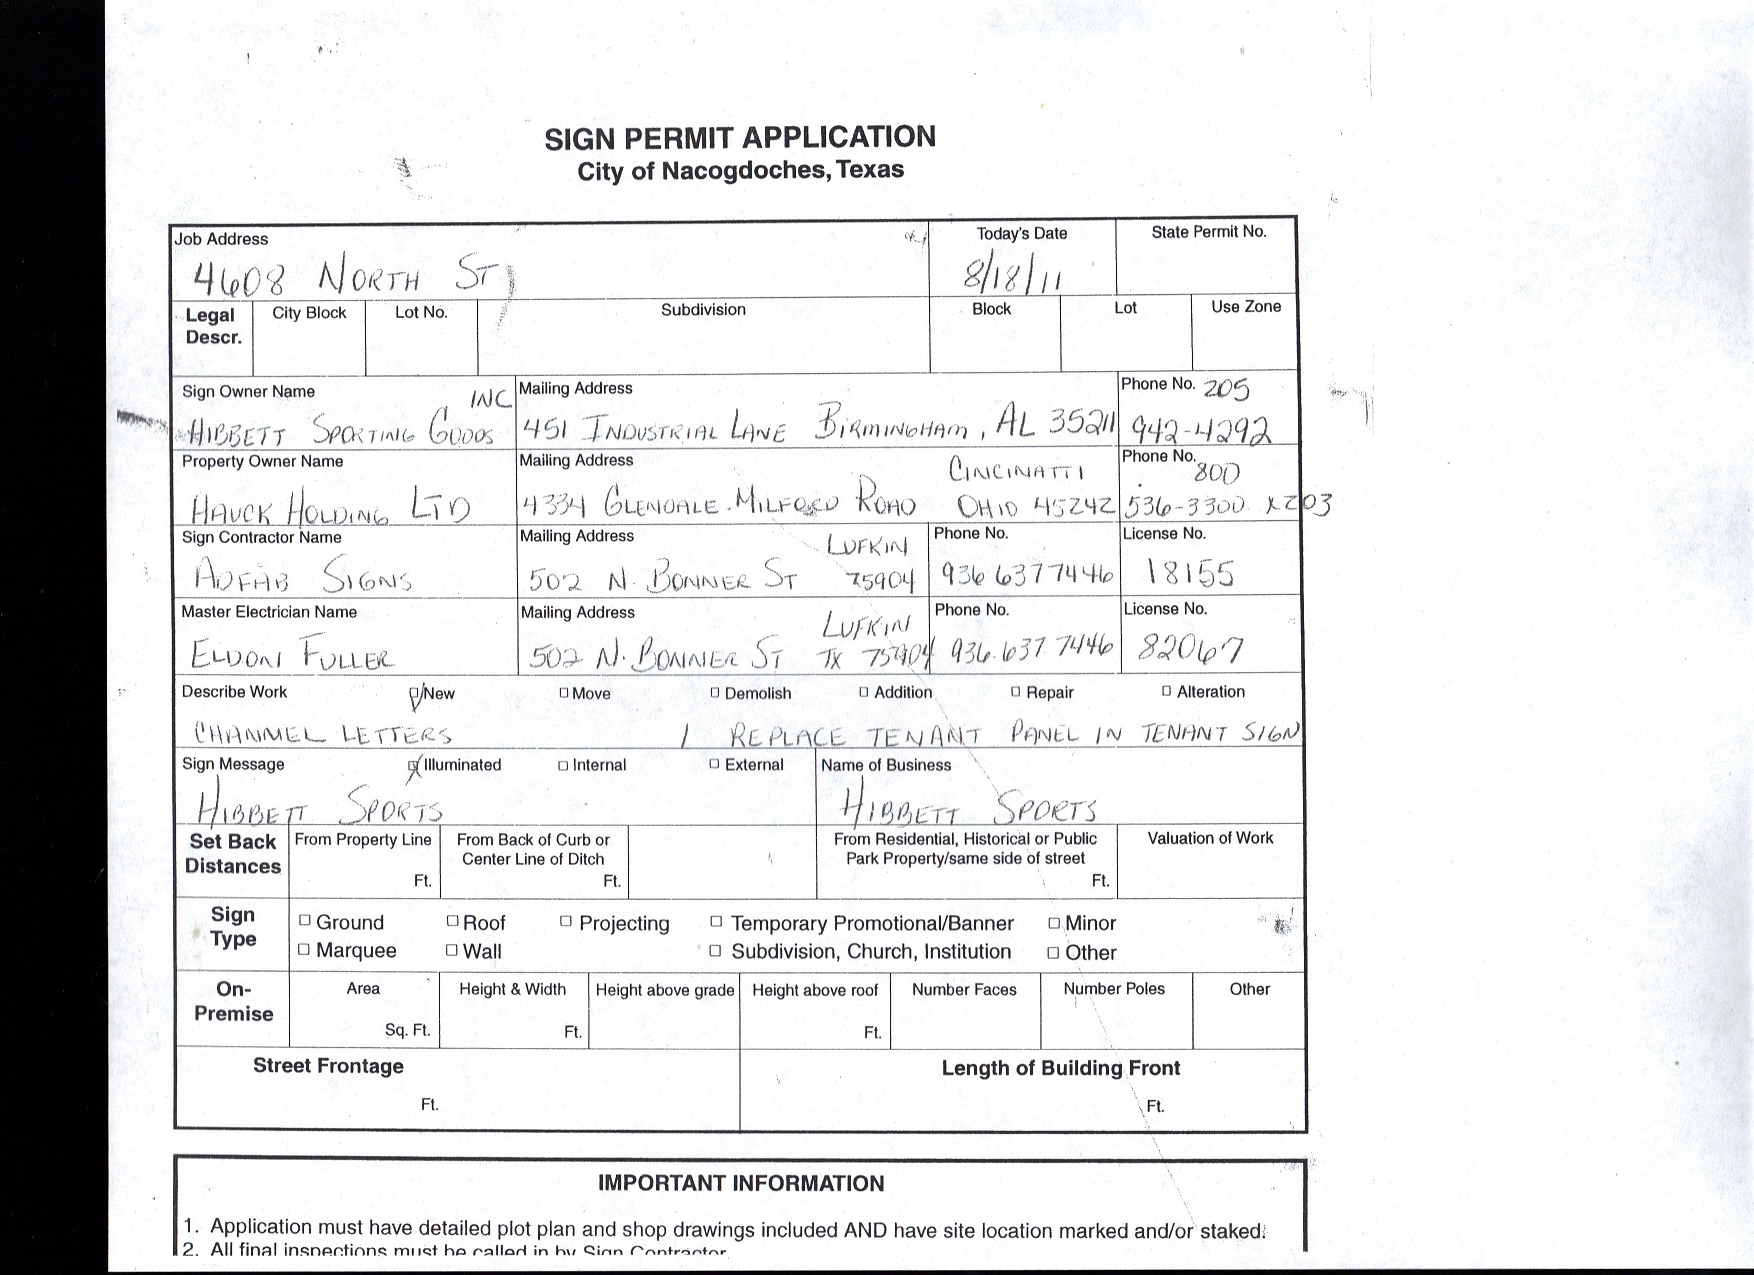 SIGN PERMIT APPLICATION
City of Nacogdoches, Texas
Job Address
Today's Date
State Permit No.
4608 NORTH ST
8/18/11
Legal Descr.
City Block
Lot No.
Subdivision
Block
Lot
Use Zone
Sign Owner Name
HIBBETT SPORTING GOODS INC
Mailing Address
451 INDUSTRIAL LANE BIRMINGHAM, AL 35211
Phone No. 205
942-4292
Property Owner Name
HAUCK HOLDING LTD
Mailing Address
4334 GLENDALE-MILFORD ROAD CINCINATTI
OHIO 45242
Phone No. 800
536-3300 x203
Sign Contractor Name
ADFAB SIGNS
Mailing Address
502 N. BONNER ST LUFKIN
75904
Phone No.
936 637 7446
License No.
18155
Master Electrician Name
ELDON FULLER
Mailing Address
502 N. BONNER ST LUFKIN
TX 75904
Phone No.
936.637 7446
License No.
82067
Describe Work New Move Demolish Addition Repair Alteration
CHANNEL LETTERS / REPLACE TENANT PANEL IN TENANT SIGN
Sign Message Illuminated Internal External
HIBBETT SPORTS
Name of Business
HIBBETT SPORTS
Set Back Distances
From Property Line
Ft.
From Back of Curb or
Center Line of Ditch
Ft.
From Residential, Historical or Public
Park Property/same side of street
Ft.
Valuation of Work
Sign Type
Ground Roof Projecting Temporary Promotional/Banner Minor
Marquee Wall Subdivision, Church, Institution Other
On-Premise
Area
Sq. Ft.
Height & Width
Ft.
Height above grade
Height above roof
Ft.
Number Faces
Number Poles
Other
Street Frontage
Ft.
Length of Building Front
Ft.
IMPORTANT INFORMATION
1. Application must have detailed plot plan and shop drawings included AND have site location marked and/or staked.
2. All final inspections must be called in by Sign Contractor.